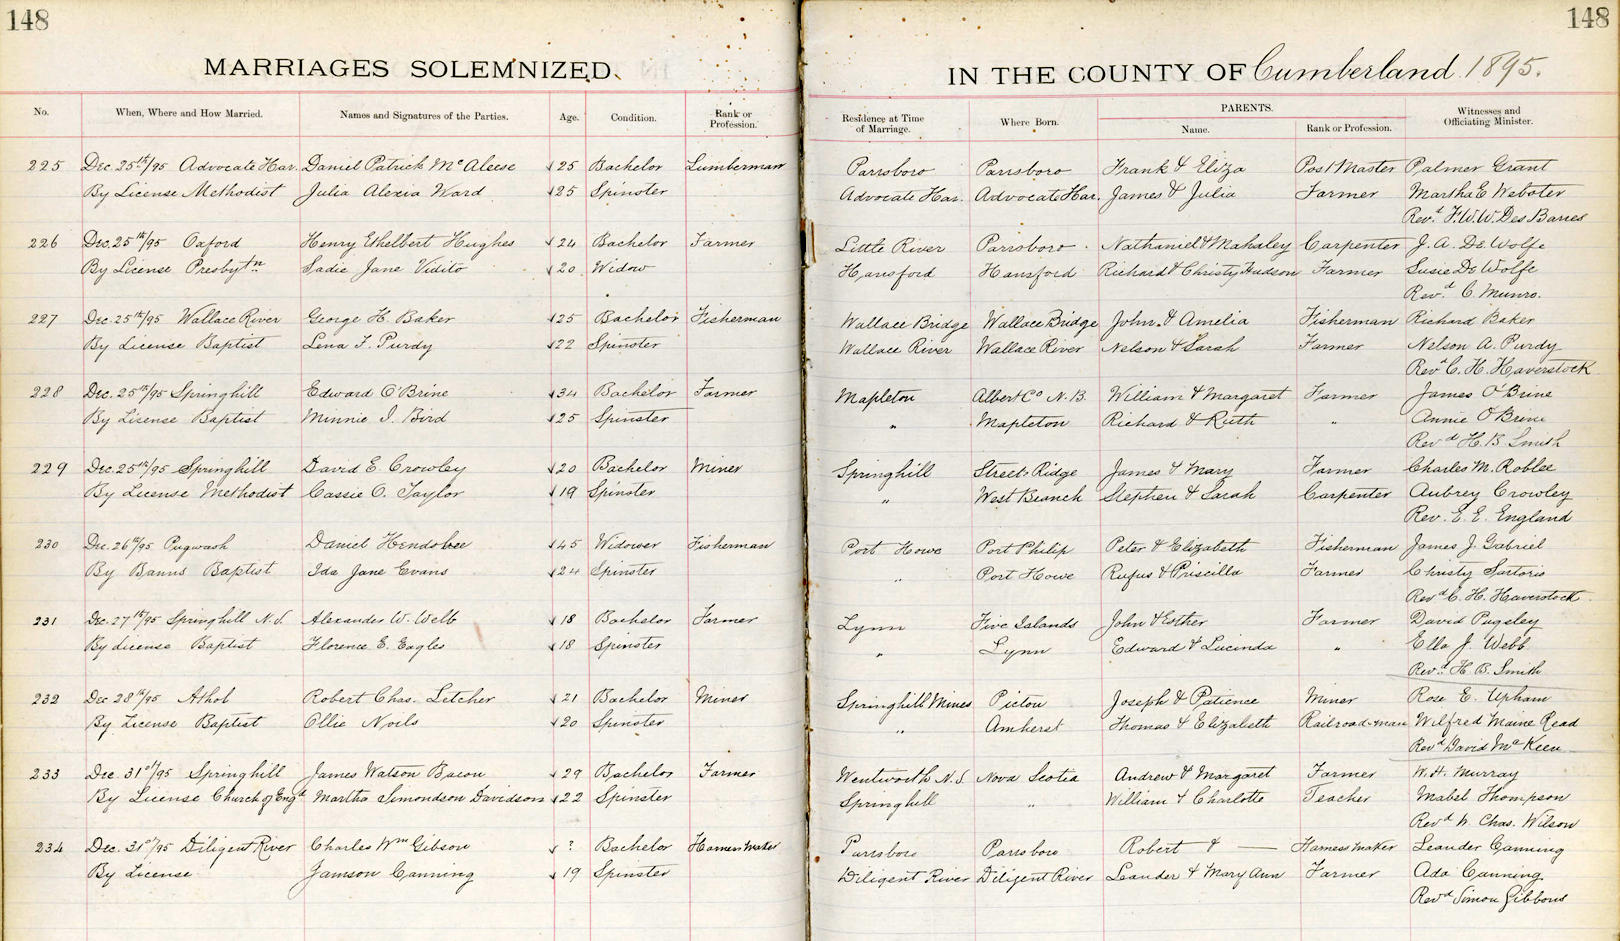 148
148
MARRIAGES SOLEMNIZED
IN THE COUNTY OF Cumberland 1895.
No. When, Where and How Married. Names and Signatures of the Parties. Age. Condition. Rank or Profession. Residence at Time of Marriage. Where Born. PARENTS. Name. Rank or Profession. Witnesses and Officiating Minister.
225 Dec. 25th/95 Advocate Har. Daniel Patrick McAleese 25 Bachelor Lumberman Parrsboro Parrsboro Frank & Eliza Post Master Palmer Grant
By License Methodist Julia Alexia Ward 25 Spinster Advocate Har. Advocate Har. James & Julia Farmer Martha E Webster
Revd. F. W. W. Des Barres
226 Dec. 25th/95 Oxford Henry Ethelbert Hughes 24 Bachelor Farmer Little River Parrsboro Nathaniel & Mahaley Carpenter J. A. DeWolfe
By License Presbytn Sadie Jane Vidito 20 Widow Hansford Hansford Richard & Christy Hudson Farmer Susie DeWolfe
Revd. C. Munro.
227 Dec. 25th/95 Wallace River George H. Baker 25 Bachelor Fisherman Wallace Bridge Wallace Bridge John & Amelia Fisherman Richard Baker
By License Baptist Lena F. Purdy 22 Spinster Wallace River Wallace River Nelson & Sarah Farmer Nelson A. Purdy
Revd C. H. Haverstock
228 Dec. 25th/95 Springhill Edward O'Brine 34 Bachelor Farmer Mapleton Albert Co N.B. William & Margaret Farmer James O'Brine
By License Baptist Minnie I. Bird 25 Spinster " Mapleton Richard & Ruth " Annie O'Brine
Revd H. B. Smith
229 Dec. 25th/95 Springhill David E. Crowley 20 Bachelor Miner Springhill Streets Ridge James & Mary Farmer Charles M. Roblee
By License Methodist Cassie O. Taylor 19 Spinster " West Branch Stephen & Sarah Carpenter Aubrey Crowley
Rev. E. E. England
230 Dec. 26th/95 Pugwash Daniel Hendsbee 45 Widower Fisherman Port Howe Port Philip Peter & Elizabeth Fisherman James J. Gabriel
By Banns Baptist Ida Jane Evans 24 Spinster " Port Howe Rufus & Priscilla Farmer Christy Sartoris
Revd C. H. Haverstock
231 Dec. 27th/95 Springhill N.S. Alexander W. Webb 18 Bachelor Farmer Lynn Five Islands John & Esther Farmer David Pugsley
By License Baptist Florence E. Eagles 18 Spinster " Lynn Edward & Lucinda " Ella J. Webb
Revd. H. B. Smith
232 Dec 28th/95 Athol Robert Chas. Letcher 21 Bachelor Miner Springhill Mines Pictou Joseph & Patience Miner Rose E. Upham
By License Baptist Ollie Noils 20 Spinster " Amherst Thomas & Elizabeth Railroad-man Wilfred Maine Read
Revd David McKeen
233 Dec. 31st/95 Springhill James Watson Bacon 29 Bachelor Farmer Wentworth N.S. Nova Scotia Andrew & Margaret Farmer W. H. Murray
By License Church of Engd Martha Simondson Davidson 22 Spinster Springhill " William & Charlotte Teacher Mabel Thompson
Revd W. Chas. Wilson
234 Dec. 31st/95 Diligent River Charles Wm Gibson ? Bachelor Harness Maker Parrsboro Parrsboro Robert & — Harness Maker Leander Canning
By License Jamson Canning 19 Spinster Diligent River Diligent River Leander & Mary Ann Farmer Ada Canning
Revd Simon Gibbons